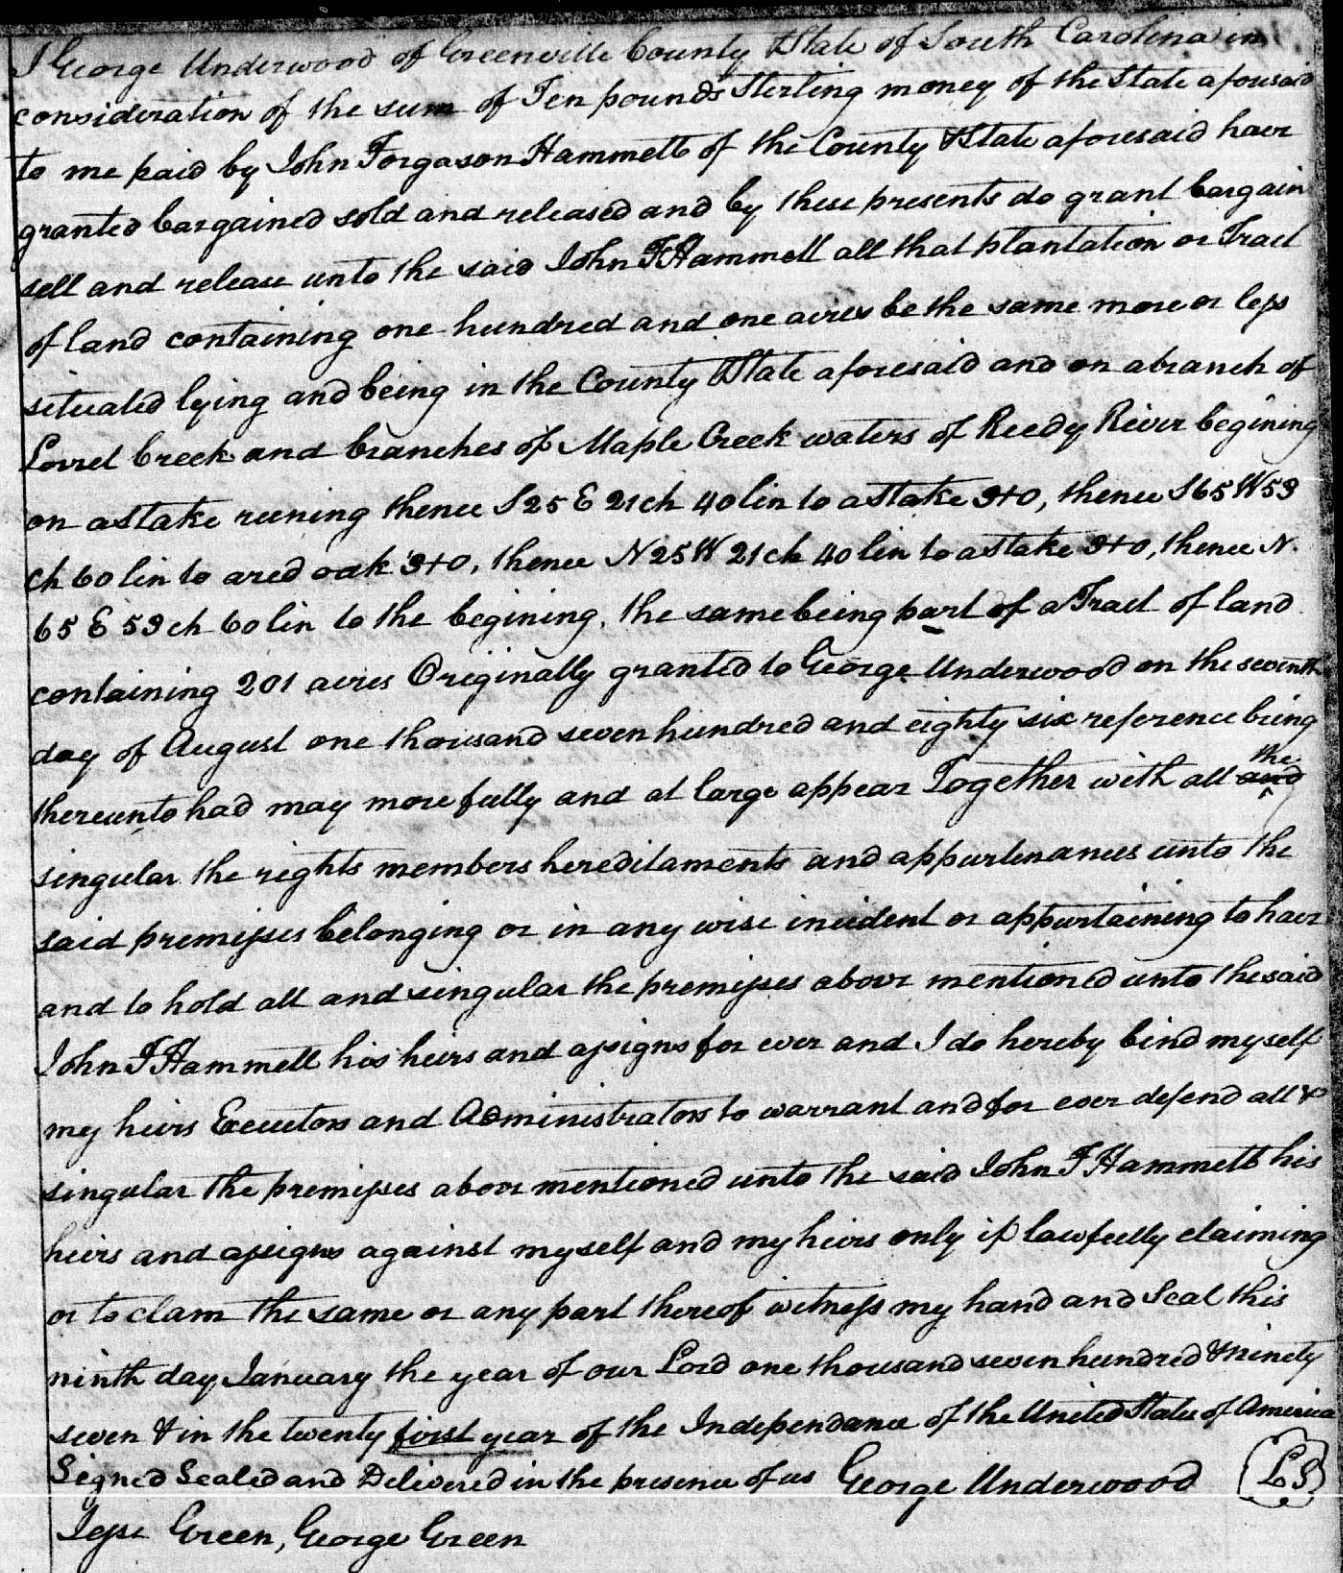 I George Underwood of Greenville County & State of South Carolina in
consideration of the sum of Ten pounds Sterling money of the State aforesaid
to me paid by John Forgason Hammett of the County & State aforesaid have
granted bargained sold and released and by these presents do grant bargain
sell and release unto the said John F Hammett all that plantation or Tract
of land containing one hundred and one acres be the same more or less
situated lying and being in the County & State aforesaid and on a branch of
Lorrel Creek and branches of Maple Creek waters of Reedy River begining
on a stake runing thence S 25 E 21 ch 40 lin to a stake 3+0, thence S 65 W 53
ch 60 lin to a red oak 3+0, thence N 25 W 21 ch 40 lin to a stake 3+0, thence N.
65 E 53 ch 60 lin to the begining, the same being part of a Tract of land
containing 201 acres Originally granted to George Underwood on the seventh
day of August one thousand seven hundred and eighty six reference being
thereunto had may more fully and at large appear Together with all and the
singular the rights members hereditaments and appurtenances unto the
said premisses belonging or in any wise incident or appurtaining to have
and to hold all and singular the premisses above mentioned unto the said
John F Hammett his heirs and assigns for ever and I do hereby bind myself
my heirs Executors and Administrators to warrant and for ever defend all &
singular the premisses above mentioned unto the said John F Hammett his
heirs and assigns against myself and my heirs only if lawfully claiming
or to clam the same or any part thereof witness my hand and Seal this
ninth day January the year of our Lord one thousand seven hundred & ninety
seven & in the twenty first year of the Independance of the United States of America
Signed Sealed and Delivered in the presence of us George Underwood LS
Jesse Green, George Green